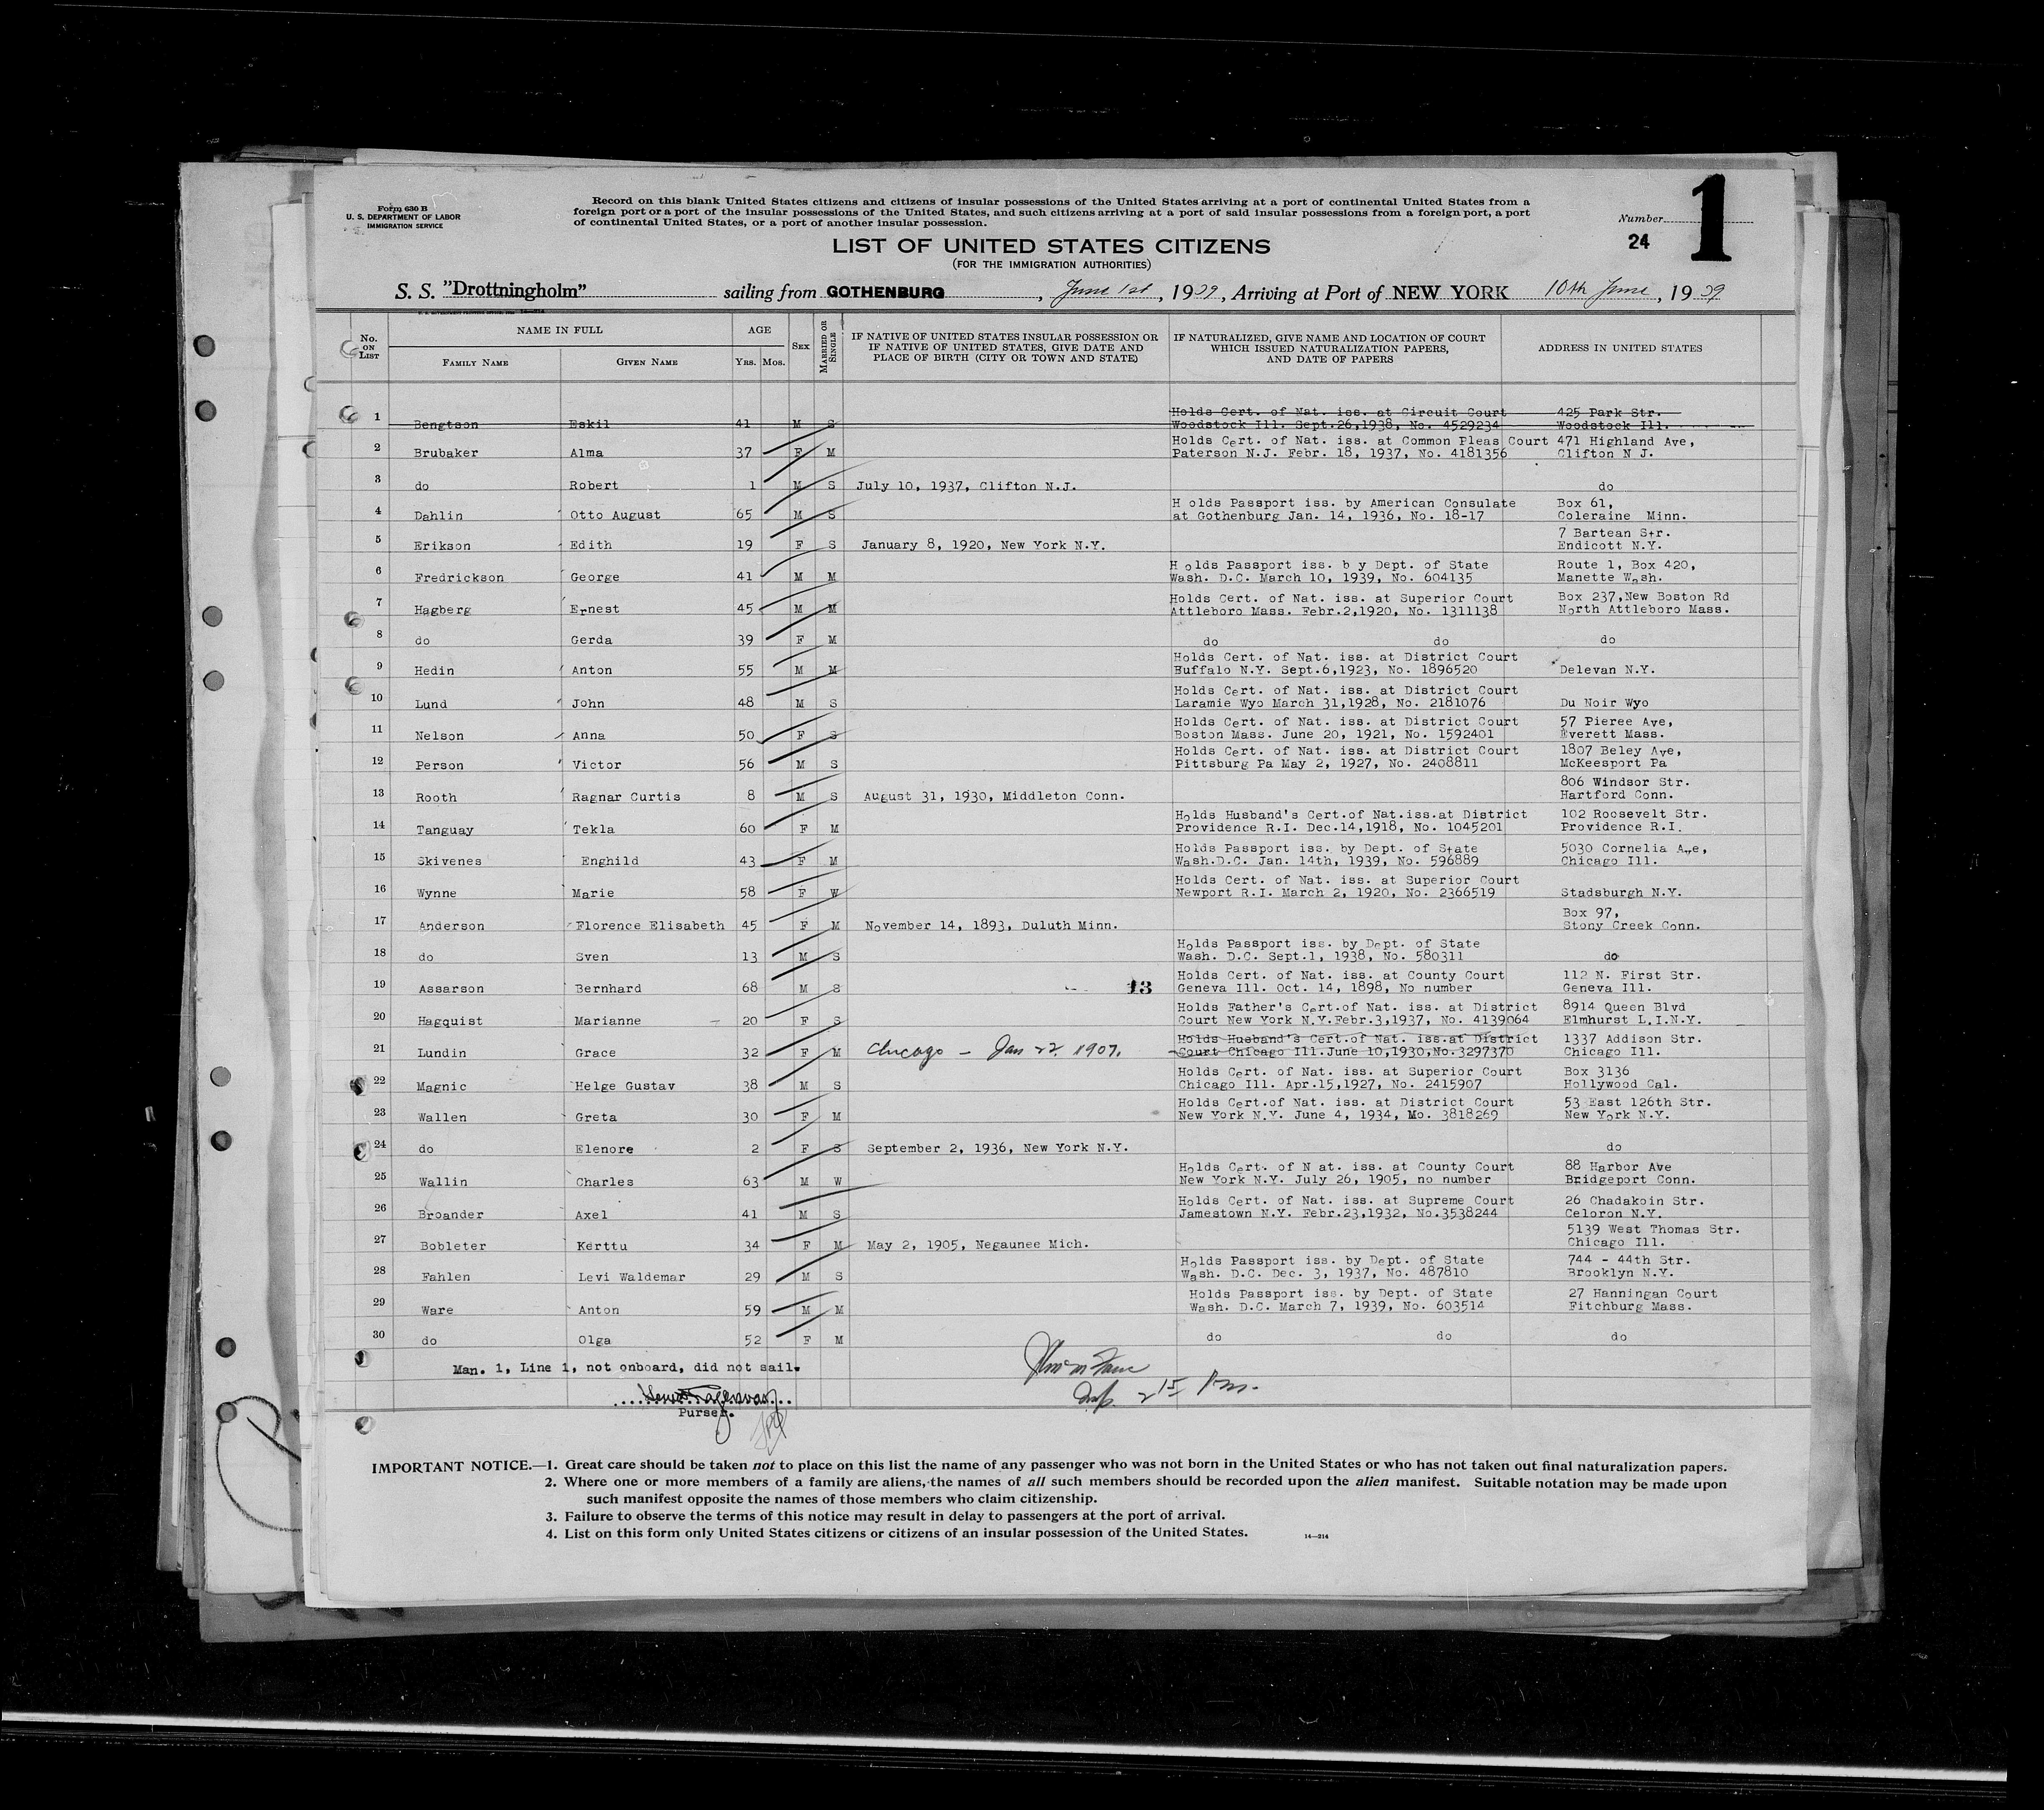 Form 630 B
U. S. DEPARTMENT OF LABOR
IMMIGRATION SERVICE
Record on this blank United States citizens and citizens of insular possessions of the United States arriving at a port of continental United States from a
foreign port or a port of the insular possessions of the United States, and such citizens arriving at a port of said insular possessions from a foreign port, a port
of continental United States, or a port of another insular possession.
Number
1
24
LIST OF UNITED STATES CITIZENS
(FOR THE IMMIGRATION AUTHORITIES)
S. S. "Drottningholm" sailing from GOTHENBURG, June 1st, 1939, Arriving at Port of NEW YORK 10th June, 1939
No. ON LIST NAME IN FULL AGE SEX MARRIED OR SINGLE IF NATIVE OF UNITED STATES INSULAR POSSESSION OR IF NATIVE OF UNITED STATES, GIVE DATE AND PLACE OF BIRTH (CITY OR TOWN AND STATE) IF NATURALIZED, GIVE NAME AND LOCATION OF COURT WHICH ISSUED NATURALIZATION PAPERS, AND DATE OF PAPERS ADDRESS IN UNITED STATES
FAMILY NAME GIVEN NAME YRS. MOS.
Holds Cert. of Nat. iss. at Circuit Court 425 Park Str.
1 Bengtson Eskil 41 M S Woodstock Ill. Sept.26,1938, No. 4529234 Woodstock Ill.
Holds Cert. of Nat. iss. at Common Pleas Court 471 Highland Ave,
2 Brubaker Alma 37 F M Paterson N.J. Febr. 18, 1937, No. 4181356 Clifton N J.
3 do Robert 1 M S July 10, 1937, Clifton N.J. do
H olds Passport iss. by American Consulate Box 61,
4 Dahlin Otto August 65 M S at Gothenburg Jan. 14, 1936, No. 18-17 Coleraine Minn.
7 Bartean Str.
5 Erikson Edith 19 F S January 8, 1920, New York N.Y. Endicott N.Y.
H olds Passport iss. b y Dept. of State Route 1, Box 420,
6 Fredrickson George 41 M M Wash. D.C. March 10, 1939, No. 604135 Manette Wash.
Holds Cert. of Nat. iss. at Superior Court Box 237,New Boston Rd
7 Hagberg Ernest 45 M M Attleboro Mass. Febr.2,1920, No. 1311138 North Attleboro Mass.
8 do Gerda 39 F M do do do
Holds Cert. of Nat. iss. at District Court
9 Hedin Anton 55 M M Buffalo N.Y. Sept.6,1923, No. 1896520 Delevan N.Y.
Holds Cert. of Nat. iss. at District Court
10 Lund John 48 M S Laramie Wyo March 31,1928, No. 2181076 Du Noir Wyo
Holds Cert. of Nat. iss. at District Court 57 Pieree Ave,
11 Nelson Anna 50 F S Boston Mass. June 20, 1921, No. 1592401 Everett Mass.
Holds Cert. of Nat. iss. at District Court 1807 Beley Ave,
12 Person Victor 56 M S Pittsburg Pa May 2, 1927, No. 2408811 McKeesport Pa
806 Windsor Str.
13 Rooth Ragnar Curtis 8 M S August 31, 1930, Middleton Conn. Hartford Conn.
Holds Husband's Cert.of Nat.iss.at District 102 Roosevelt Str.
14 Tanguay Tekla 60 F M Providence R.I. Dec.14,1918, No. 1045201 Providence R.I.
Holds Passport iss. by Dept. of State 5030 Cornelia Ave,
15 Skivenes Enghild 43 F M Wash.D.C. Jan. 14th, 1939, No. 596889 Chicago Ill.
Holds Cert. of Nat. iss. at Superior Court
16 Wynne Marie 58 F W Newport R.I. March 2, 1920, No. 2366519 Stadsburgh N.Y.
Box 97,
17 Anderson Florence Elisabeth 45 F M November 14, 1893, Duluth Minn. Stony Creek Conn.
Holds Passport iss. by Dept. of State
18 do Sven 13 M S Wash. D.C. Sept.1, 1938, No. 580311 do
Holds Cert. of Nat. iss. at County Court 112 N. First Str.
19 Assarson Bernhard 68 M S 13 Geneva Ill. Oct. 14, 1898, No number Geneva Ill.
Holds Father's Cert.of Nat. iss. at District 8914 Queen Blvd
20 Hagquist Marianne 20 F S Court New York N.Y.Febr.3,1937, No. 4139064 Elmhurst L.I.N.Y.
Holds Husband's Cert.of Nat. iss.at District 1337 Addison Str.
21 Lundin Grace 32 F M Chicago - Jan 22. 1907. Court Chicago Ill.June 10,1930,No.3297370 Chicago Ill.
Holds Cert. of Nat. iss. at Superior Court Box 3136
22 Magnic Helge Gustav 38 M S Chicago Ill. Apr.15,1927, No. 2415907 Hollywood Cal.
Holds Cert.of Nat. iss. at District Court 53 East 126th Str.
23 Wallen Greta 30 F M New York N.Y. June 4, 1934, Mo. 3818269 New York N.Y.
24 do Elenore 2 F S September 2, 1936, New York N.Y. do
Holds Cert. of N at. iss. at County Court 88 Harbor Ave
25 Wallin Charles 63 M W New York N.Y. July 26, 1905, no number Bridgeport Conn.
Holds Cert. of Nat. iss. at Supreme Court 26 Chadakoin Str.
26 Broander Axel 41 M S Jamestown N.Y. Febr.23,1932, No.3538244 Celoron N.Y.
5139 West Thomas Str.
27 Bobleter Kerttu 34 F M May 2, 1905, Negaunee Mich. Chicago Ill.
Holds Passport iss. by Dept. of State 744 - 44th Str.
28 Fahlen Levi Waldemar 29 M S Wash. D.C. Dec. 3, 1937, No. 487810 Brooklyn N.Y.
Holds Passport iss. by Dept. of State 27 Hanningan Court
29 Ware Anton 59 M M Wash. D.C. March 7, 1939, No. 603514 Fitchburg Mass.
30 do Olga 52 F M do do do
Man. 1, Line 1, not onboard, did not sail.
Insp. 2 15 P.m.
Purser.
IMPORTANT NOTICE.—1. Great care should be taken not to place on this list the name of any passenger who was not born in the United States or who has not taken out final naturalization papers.
2. Where one or more members of a family are aliens, the names of all such members should be recorded upon the alien manifest. Suitable notation may be made upon
such manifest opposite the names of those members who claim citizenship.
3. Failure to observe the terms of this notice may result in delay to passengers at the port of arrival.
4. List on this form only United States citizens or citizens of an insular possession of the United States.
14—214